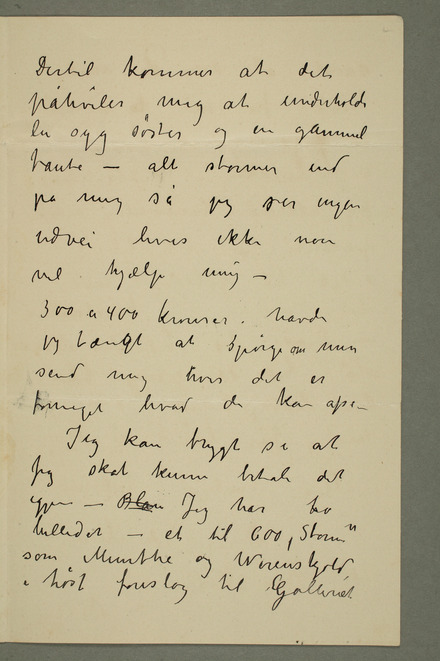 Dertil kommer at det
påhviler mig at underholde
en syg söster og en gammel
tante – alt stormer ind
på mig så jeg ser ingen
udvei hvis ikke noen
vil hjælpe mig –
300 a 400 kroner. havde
jeg tænkt at spörge om men
send mig hvis det er
formeget hvad du kan afse –
Jeg kan trygt si at
jeg skal kunne betale det
igjen – Jeg har to
billeder – et til 600, Storm"
som Munthe og Werenskjold
i höst foreslog til Galleriet